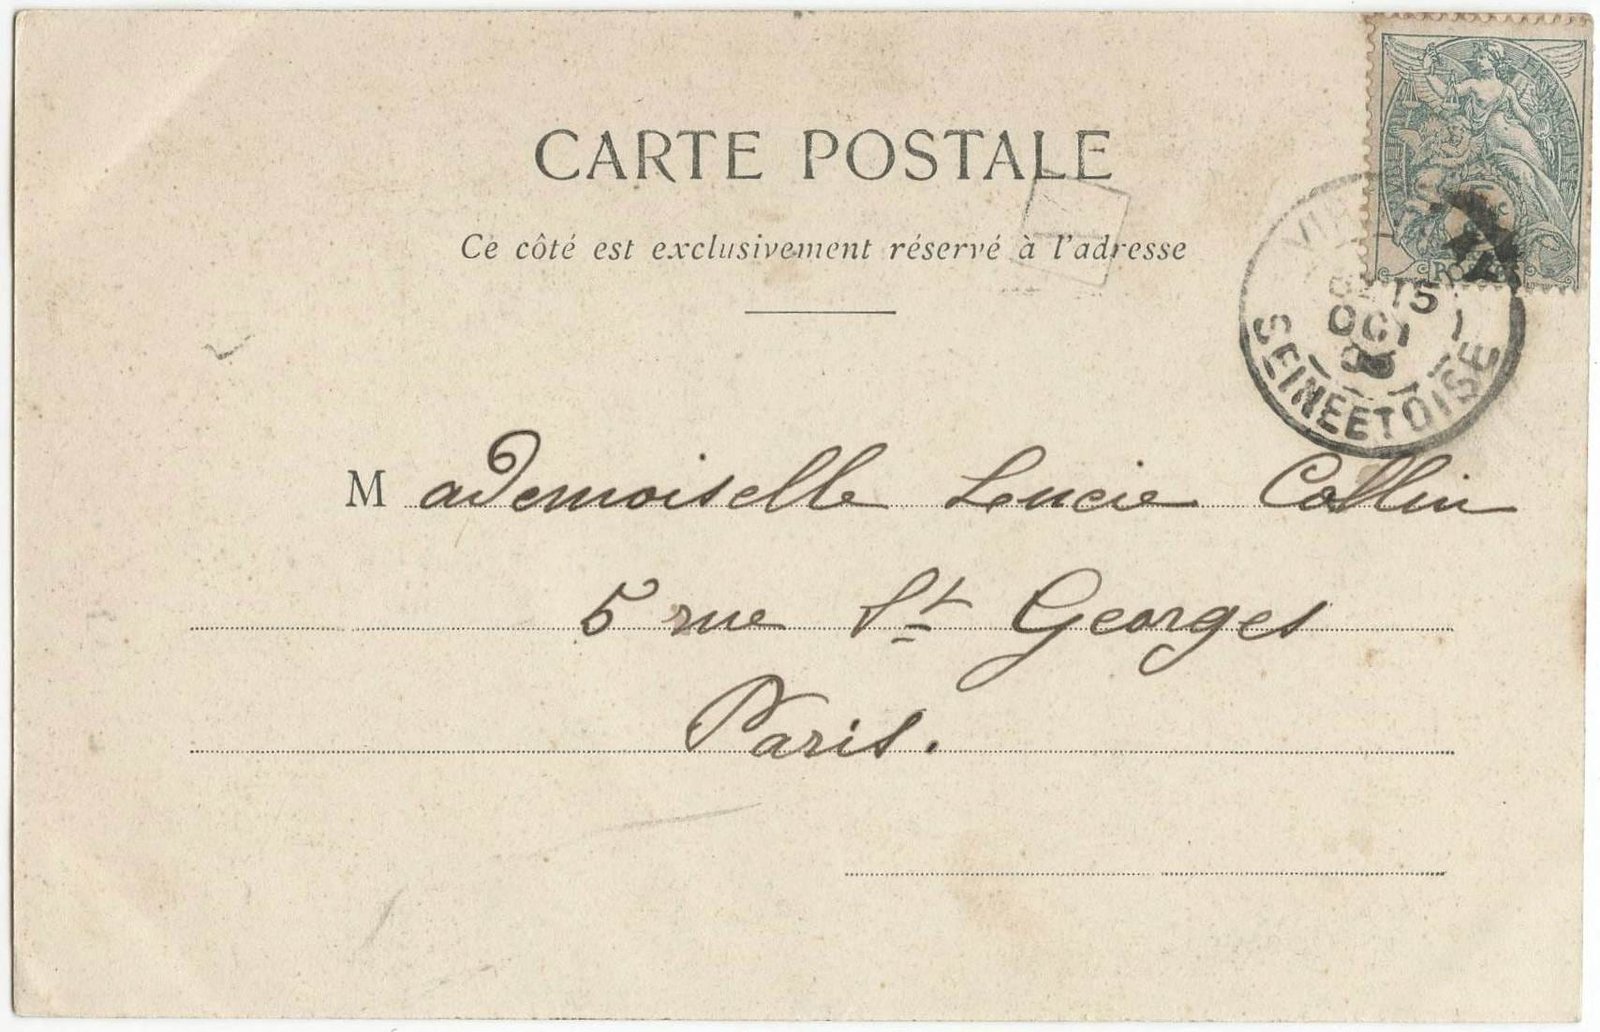 CARTE POSTALE
Ce côté est exclusivement réservé à l'adresse
POSTES
15
OCT
SEINE ET OISE
Mademoiselle Lucie Collin
5 rue St Georges
Paris.